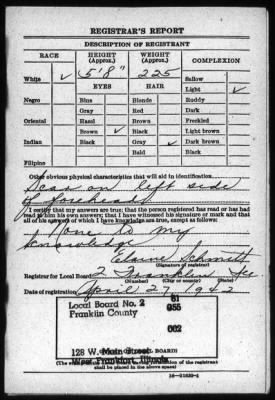 REGISTRAR'S REPORT
DESCRIPTION OF REGISTRANT
RACE HEIGHT (Approx.) WEIGHT (Approx.) COMPLEXION
5'8" 225 Sallow
White ✓ EYES HAIR Light ✓
Negro Blue Blonde Ruddy
Gray Red Dark
Oriental Hazel Brown Freckled
Brown ✓ Black Light brown
Indian Black Gray ✓ Dark brown
Bald Black
Filipino
Other obvious physical characteristics that will aid in identification
Scar on left side
of forehead
I certify that my answers are true; that the person registered has read or has had
read to him his own answers; that I have witnessed his signature or mark and that
all of his answers of which I have knowledge are true, except as follows:
None to my
knowledge
Elaine Schmitt
(Signature of registrar)
Registrar for Local Board 2 Franklin Ill
(Number) (City or county) (State)
Date of registration April 27, 1942
Local Board No. 2 81
Franklin County 055
002
128 W. Main Street
West Frankfort, Illinois
(The stamp of the Local Board having jurisdiction of the registrant
shall be placed in the above space)